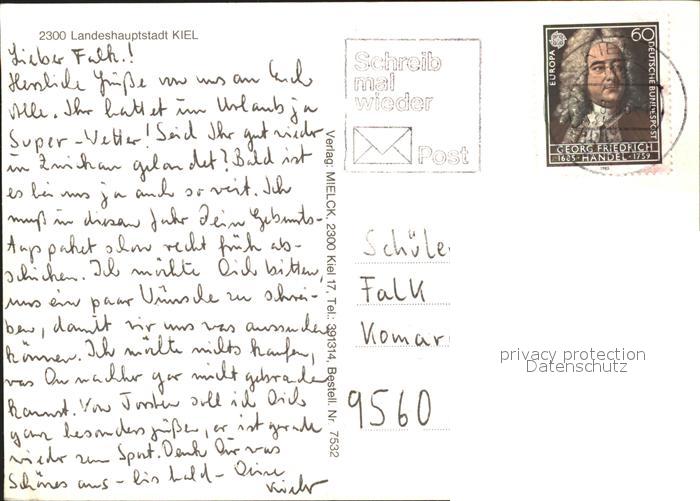 2300 Landeshauptstadt KIEL
Lieber Falk!
Herzliche Grüße von uns an Euch
Alle. Ihr hattet im Urlaub ja
Super-Wetter! Seid Ihr gut wieder
in Zwickau gelandet? Bald ist
es bei uns ja auch so weit. Ich
muß in diesem Jahr Dein Geburts-
tagspaket schon recht früh ab-
schicken. Ich möchte Dich bitten,
uns ein paar Wünsche zu schrei-
ben, damit wir uns was aussuchen
können. Ich möchte nichts kaufen,
was Du nachher gar nicht gebrauchen
kannst. Von Torsten soll ich Dich
ganz besonders grüßen, er ist gerade
wieder zum Sport. Denk Dir was
Schönes aus - bis bald - Deine
Verlag: MIELCK, 2300 Kiel 17, Tel.: 391314, Bestell. Nr. 7532
Schreib
mal
wieder
Post
EUROPA
60
DEUTSCHE BUNDESPOST
GEORG FRIEDRICH
1685 · HÄNDEL · 1759
1985
Schüle
Falk
Komar
9560
privacy protection
Datenschutz